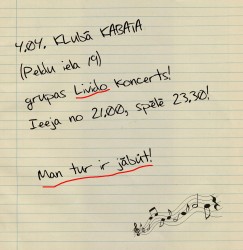 4.04. Klubā KABATA
(Peldu iela 19)
grupas Livido koncerts!
Ieeja no 21.00, spēlē 23.30!
Man tur ir jābūt!